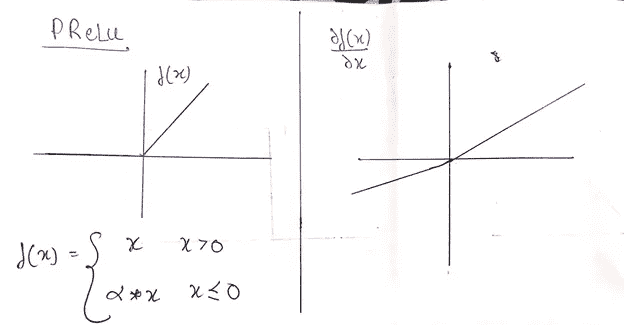 PReLu
f(x)
f(x) = { x x > 0
α * x x ≤ 0
∂f(x)
∂x